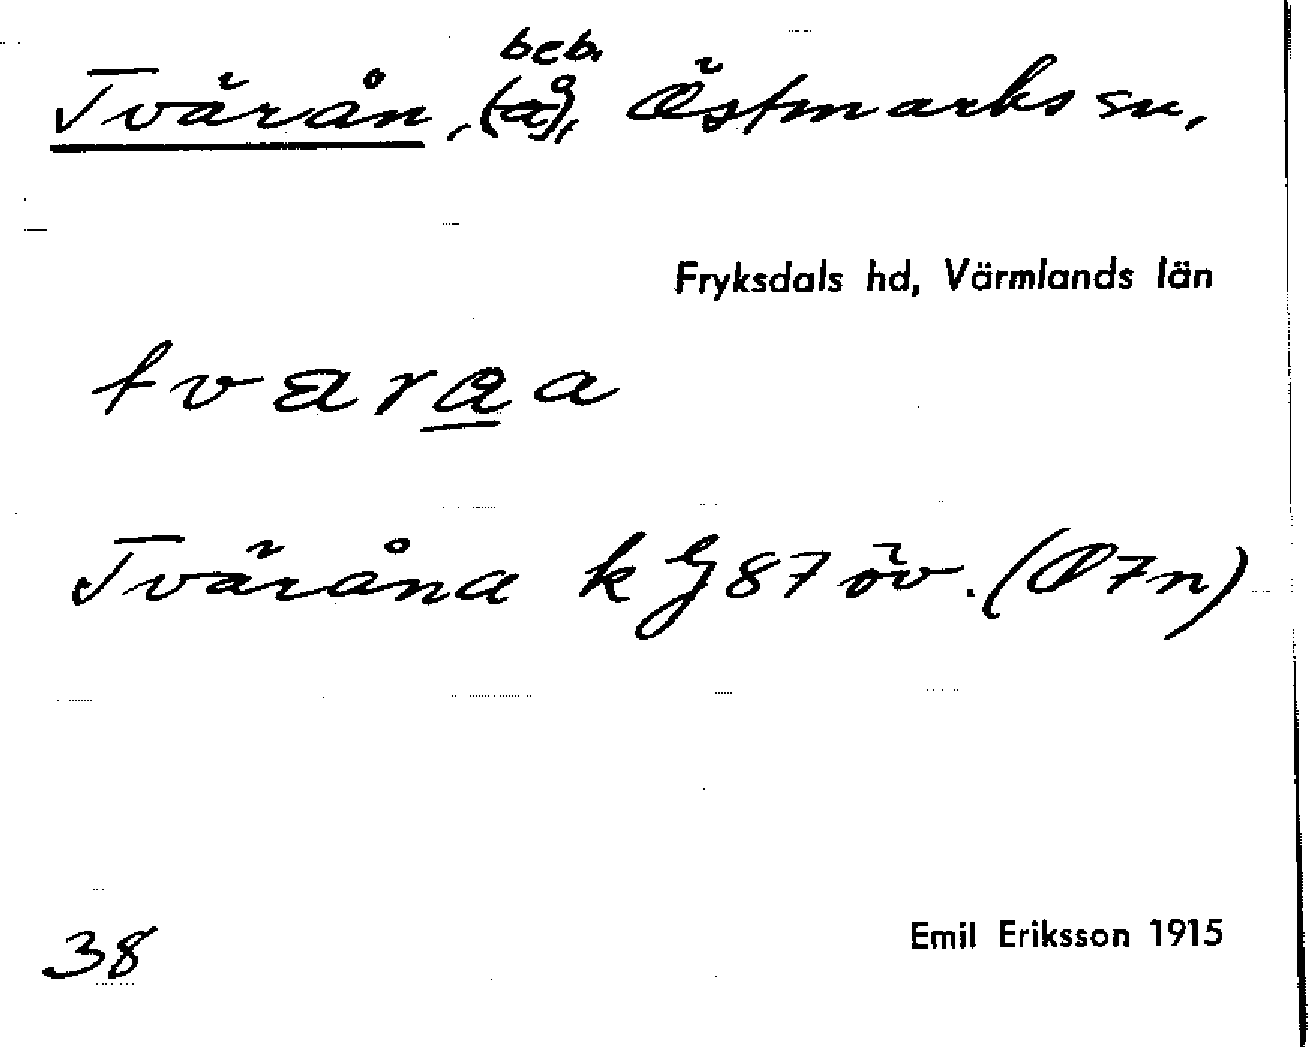 Tvärån, (å), beb. Östmarks sn,
Fryksdals hd, Värmlands län
tvaraa
Tväråna k Gj 87 öv. (Ö7n)
38
Emil Eriksson 1915